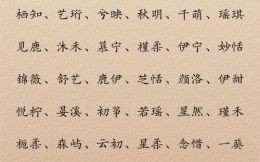 栖知、艺珩、兮映、秋明、千萌、瑶琪
见鹿、沐禾、慕宁、槿柔、伊宁、妙恬
锦薇、舒艺、鹿伊、芝恬、颜洛、伊甜
悦柠、晏溪、初筝、若瑶、星然、瑾禾
栀柔、森屿、云初、星柔、念惜、一葵